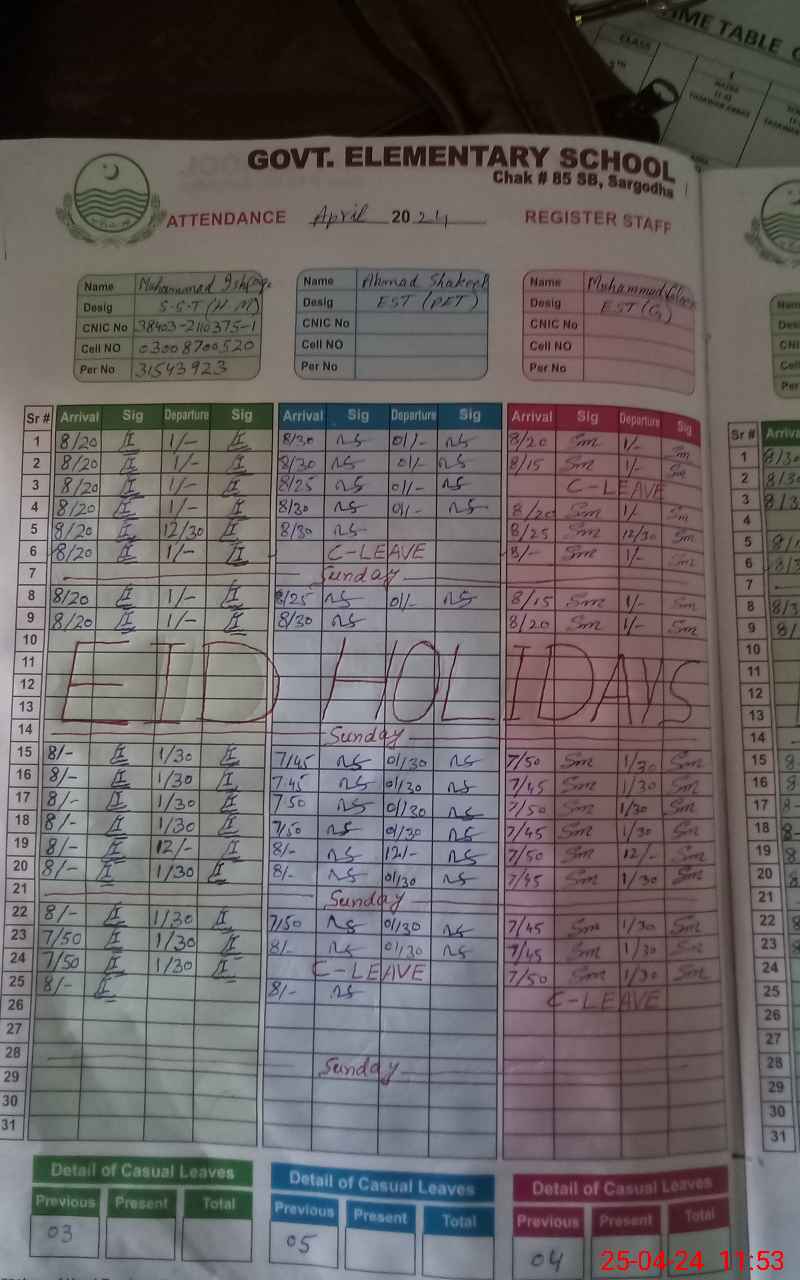 TIME TABLE
CLASS
GOVT. ELEMENTARY SCHOOL
Chak # 85 SB, Sargodha
ATTENDANCE April 2024 REGISTER STAFF
Name Muhammad Name Ahmad Shakeel Name Muhammad
Desig S-S-T (H.M) Desig EST (PET) Desig EST (G)
CNIC No 38403-2110375-1 CNIC No CNIC No
Cell NO 03008700520 Cell NO Cell NO
Per No 31543923 Per No Per No
Sr # Arrival Sig Departure Sig Arrival Sig Departure Sig Arrival Sig Departure Sig Sr #
1 8/20 1/- 8/30 ns 01/- ns 8/20 Sm 1/- Sm 1 8/30
2 8/20 1/- 8/30 ns 01/- ns 8/15 Sm 1/- Sm 2
3 8/20 1/- 8/25 ns 01/- ns C-LEAVE 3
4 8/20 1/- 8/30 ns 01/- ns 8/20 Sm 1/- Sm 4
5 8/20 12/30 8/30 ns 8/25 Sm 12/30 Sm 5
6 8/20 1/- C-LEAVE 8/- Sm 1/- Sm 6
7 Sunday 7
8 8/20 1/- 8/25 ns 01/- ns 8/15 Sm 1/- Sm 8
9 8/20 1/- 8/30 ns 8/20 Sm 1/- Sm 9
10 10
11 11
EID HOLIDAYS
12 12
13 13
14 Sunday 14
15 8/- 1/30 7/45 ns 01/30 ns 7/50 Sm 1/30 Sm 15
16 8/- 1/30 7.45 ns 01/30 ns 7/45 Sm 1/30 Sm 16
17 8/- 1/30 7.50 ns 01/30 ns 7/50 Sm 1/30 Sm 17
18 8/- 1/30 7/50 ns 01/30 ns 7/45 Sm 1/30 Sm 18
19 8/- 12/- 8/- ns 12/- ns 7/50 Sm 12/- Sm 19
20 8/- 1/30 8/- ns 01/30 ns 7/45 Sm 1/30 Sm 20
21 Sunday 21
22 8/- 1/30 7/50 ns 01/30 ns 7/45 Sm 1/30 Sm 22
23 7/50 1/30 8/- ns 01/30 ns 7/45 Sm 1/30 Sm 23
24 7/50 1/30 C-LEAVE 7/50 Sm 1/30 Sm 24
25 8/- 8/- ns C-LEAVE 25
26 26
27 27
28 Sunday 28
29 29
30 30
31 31
Detail of Casual Leaves Detail of Casual Leaves Detail of Casual Leaves
Previous Present Total Previous Present Total Previous Present Total
03 05 04
25-04-24 11:53